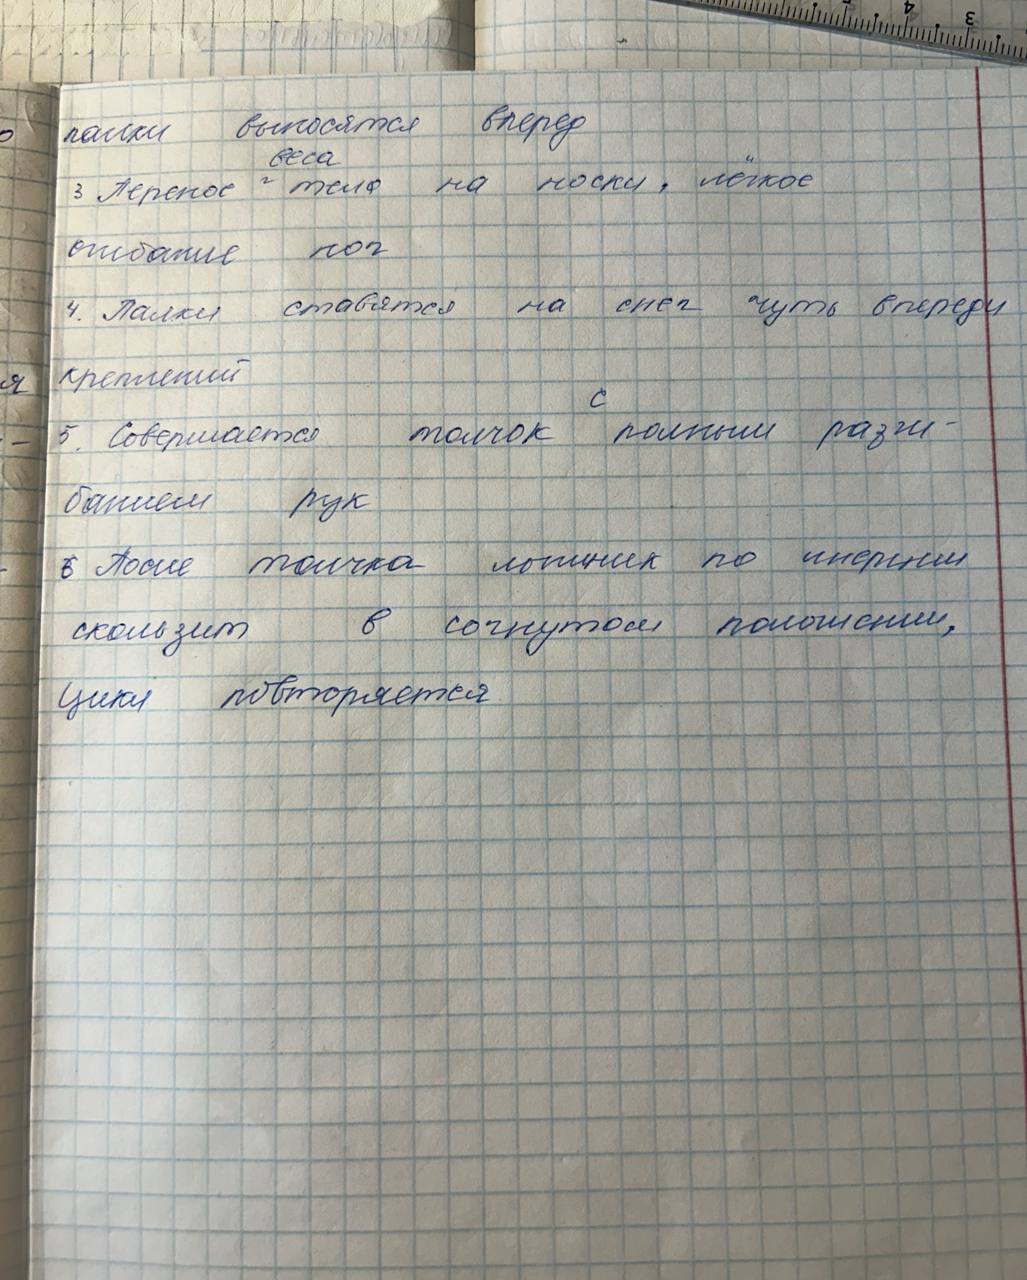 палки выносятся вперед
веса
3 Перенос тела на носки, лёгкое
сгибание ног
4. Палки ставятся на снег чуть впереди
креплений
с
5. Совершается толчок полным разги-
банием рук
6 После толчка лыжник по инерции
скользит в согнутом положении,
цикл повторяется